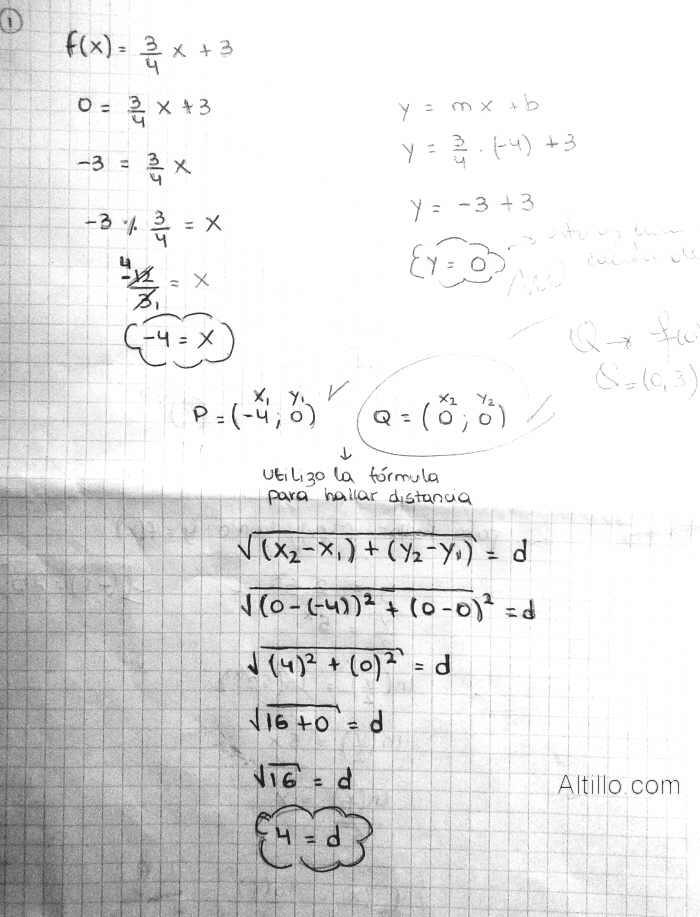 1
f(x) = 3/4 x + 3
0 = 3/4 x + 3
-3 = 3/4 x
-3 ·/. 3/4 = x
4
-12/3 1 = x
-4 = x
y = mx + b
y = 3/4 · (-4) + 3
y = -3 + 3
y = 0
Q → f(
= (0,3)
x₁ y₁
P = (-4; 0)
x₂ y₂
Q = (0; 0)
↓
utilizo la fórmula
para hallar distancia
√(x₂-x₁) + (y₂-y₁) = d
√(0-(-4))² + (0-0)² = d
√(4)² + (0)² = d
√16+0 = d
√16 = d
4 = d
Altillo.com